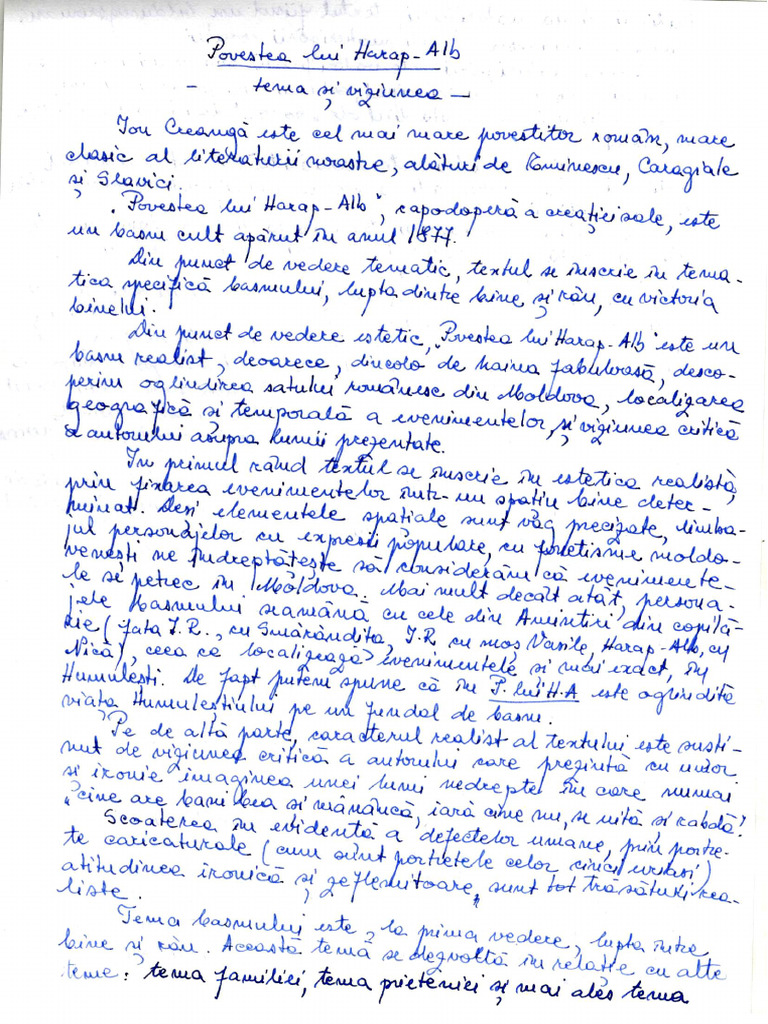 Povestea lui Harap-Alb
- tema și viziunea -
Ion Creangă este cel mai mare povestitor român, mare
clasic al literaturii noastre, alături de Eminescu, Caragiale
și Slavici.
„Povestea lui Harap-Alb”, capodoperă a creației sale, este
un basm cult apărut în anul 1877.
Din punct de vedere tematic, textul se înscrie în tema-
tica specifică basmului, lupta dintre bine și rău, cu victoria
binelui.
Din punct de vedere estetic, „Povestea lui Harap-Alb” este un
basm realist, deoarece, dincolo de haina fabuloasă, desco-
perim oglindirea satului românesc din Moldova, localizarea
geografică și temporală a evenimentelor, și viziunea critică
a autorului asupra lumii prezentate.
În primul rând textul se înscrie în estetica realistă,
prin fixarea evenimentelor într-un spațiu bine deter-
minat. Deși elementele spațiale sunt vag precizate, limba-
jul personajelor cu expresii populare, cu fonetisme moldo-
venești ne îndreptățește să considerăm că evenimente-
le se petrec în Moldova. Mai mult decât atât, persona-
jele basmului seamănă cu cele din Amintiri din copilă-
rie (fata Î.R., cu Smărăndița, Î.R. cu moș Vasile, Harap-Alb, cu
Nică), ceea ce localizează evenimentele și mai exact, în
Humulești. De fapt putem spune că în P. lui H.A este oglindită
viața Humuleștiului pe un fundal de basm.
Pe de altă parte, caracterul realist al textului este susți-
nut de viziunea critică a autorului care prezintă cu umor
și ironie imaginea unei lumi nedrepte în care numai
„cine are bani bea și mănâncă, iară cine nu, se uită și rabdă”.
Scoaterea în evidență a defectelor umane, prin portre-
te caricaturale (cum sunt portretele celor cinci uriași)
atitudinea ironică și zeflemitoare, sunt tot trăsături rea-
liste.
Tema basmului este, la prima vedere, lupta între
bine și rău. Această temă se dezvoltă în relație cu alte
teme: tema familiei, tema prieteniei și mai ales tema